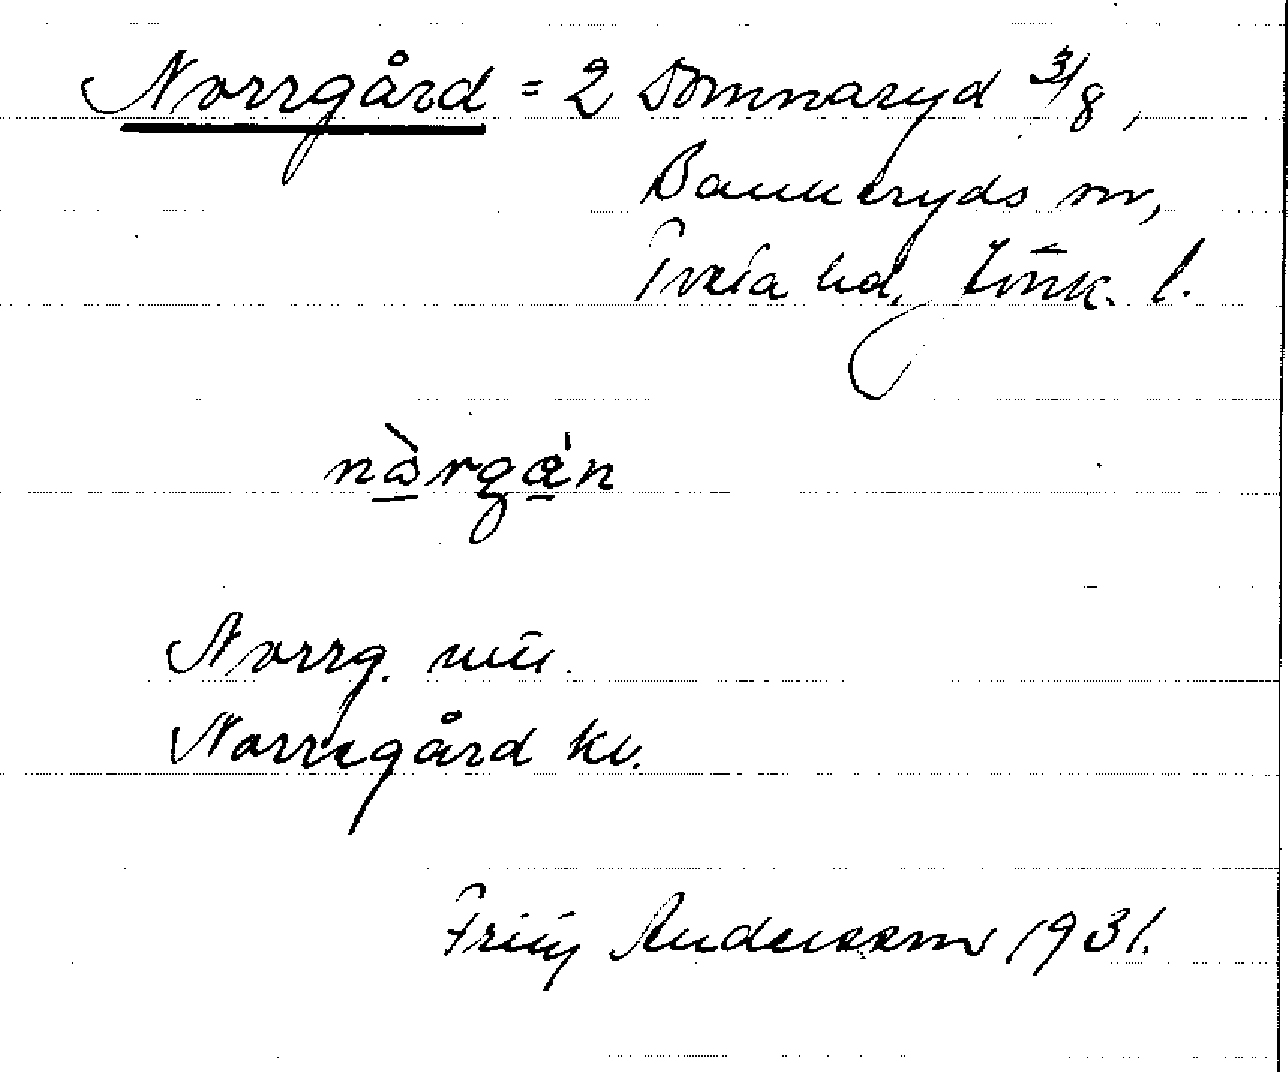 Norrgård = 2 Domnaryd 3/8,
Bankeryds sn,
Tveta hd, Jönk. l.
nàrgá̱n
Norrg. mtl.
Norregård kv.
Andersson 1931.